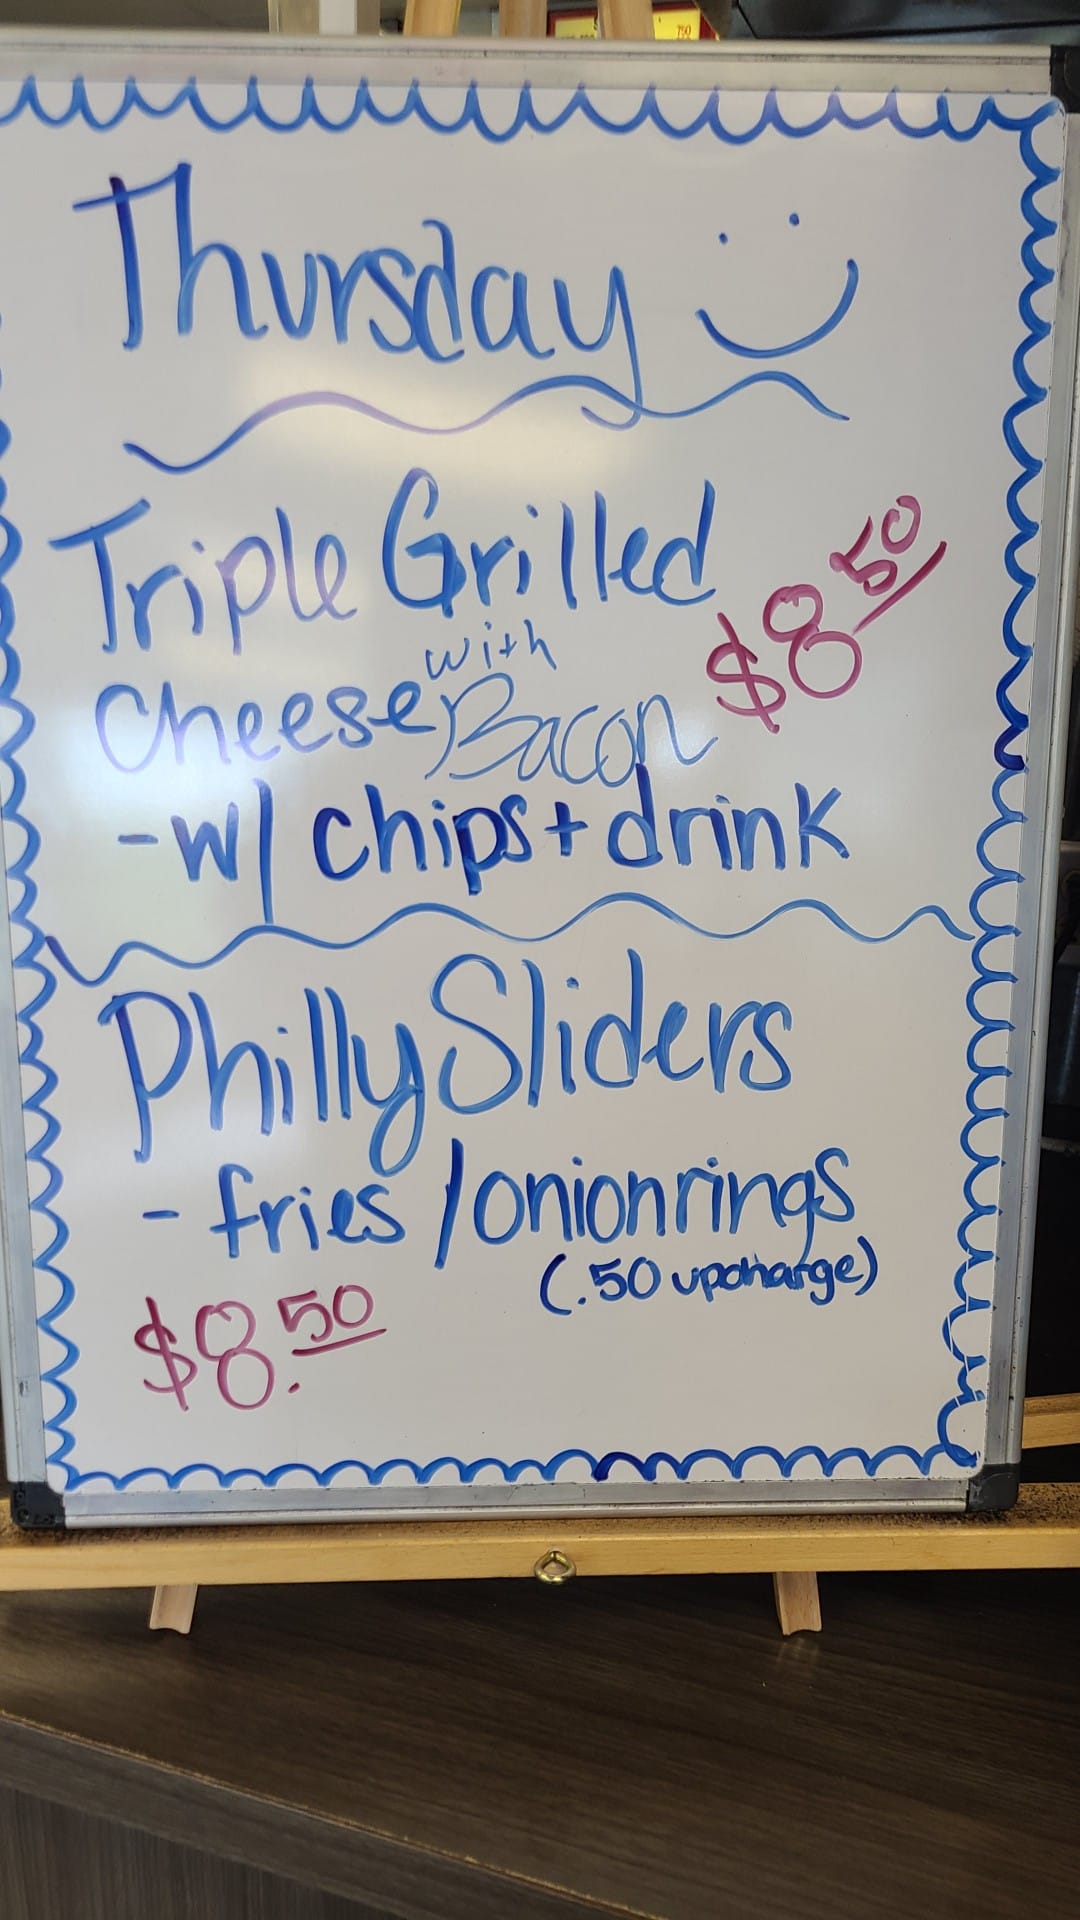 Thursday
Triple Grilled
$8 50
with
Cheese, Bacon
-w/ chips + drink
Philly Sliders
- fries / onion rings
(.50 upcharge)
$8.50